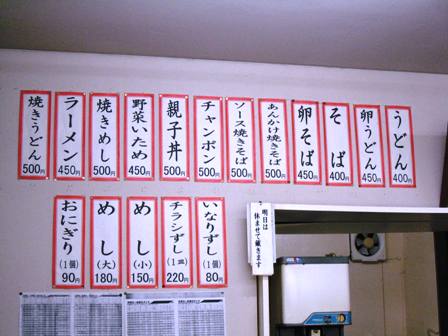 うどん 400円
卵うどん 450円
そば 400円
卵そば 450円
あんかけ焼きそば 500円
ソース焼きそば 500円
チャンポン 500円
親子丼 500円
野菜いため 450円
焼きめし 500円
ラーメン 450円
焼きうどん 500円
いなりずし(1個) 80円
チラシずし(1皿) 220円
めし(小) 150円
めし(大) 180円
おにぎり(1個) 90円
明日は
休ませて戴きます